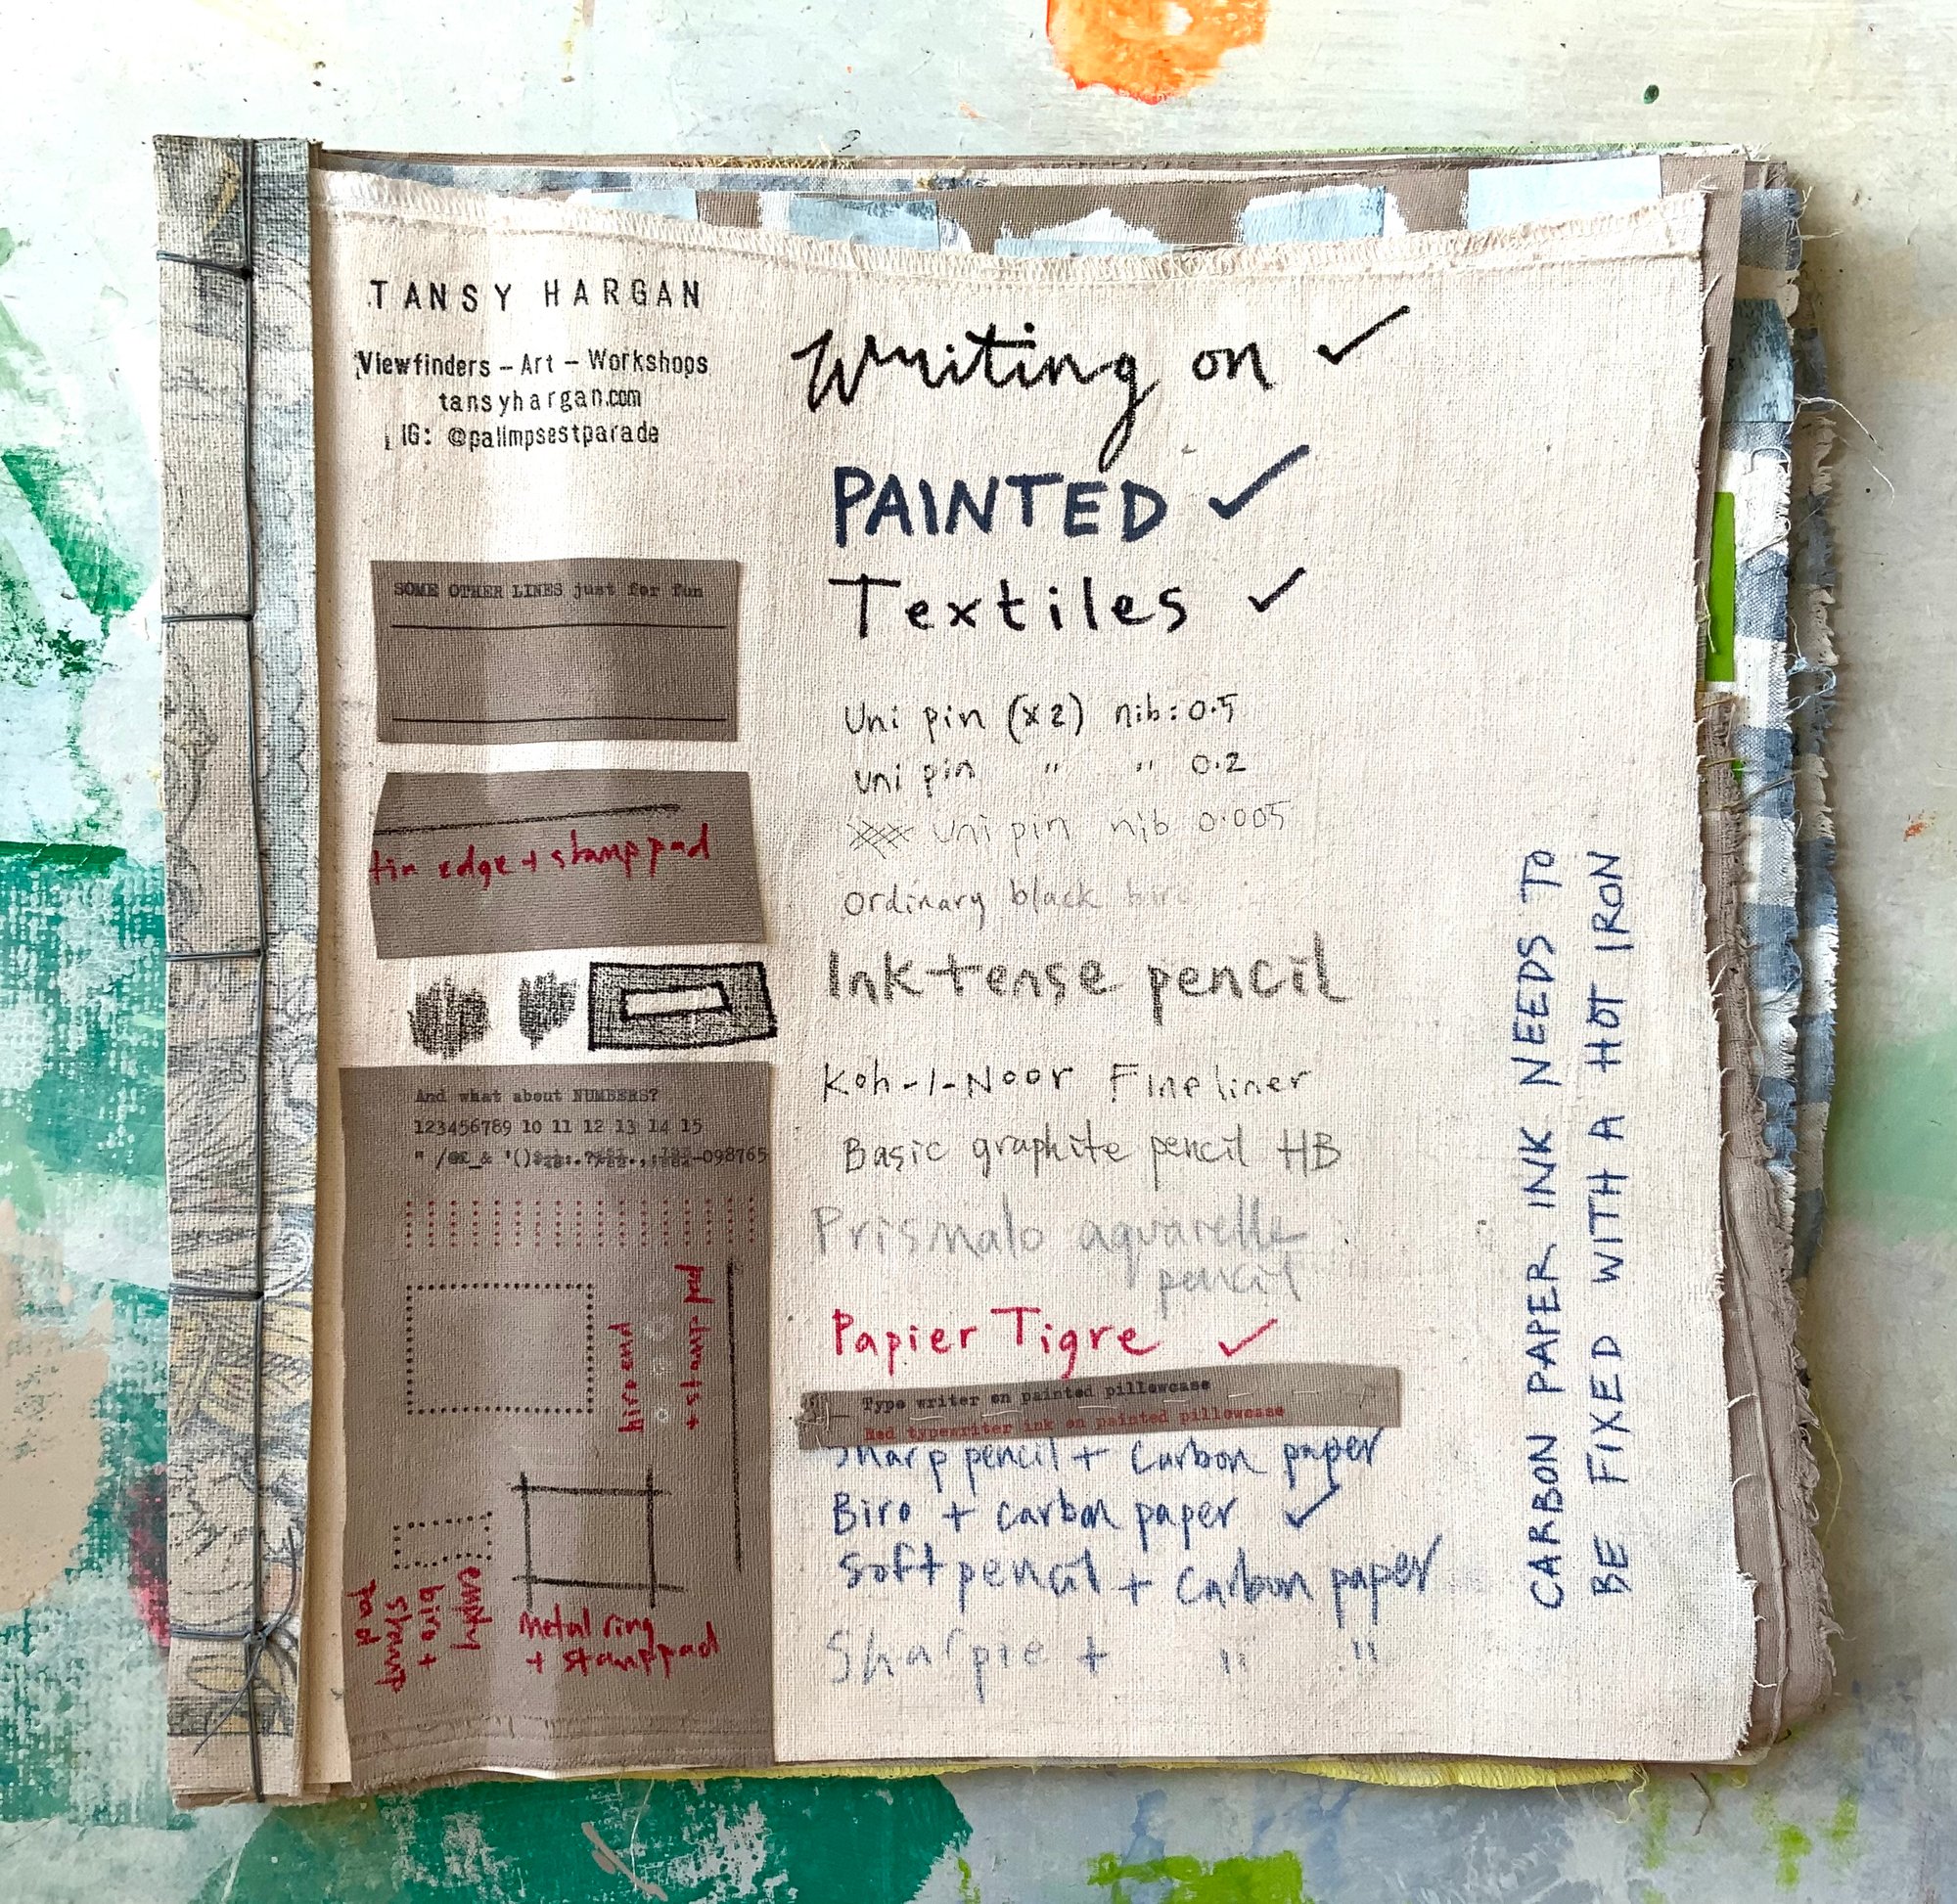 TANSY HARGAN
Viewfinders – Art – Workshops
tansyhargan.com
IG: @palimpsestparade
SOME OTHER LINES just for fun
tin edge + stamp pad
And what about NUMBERS?
123456789 10 11 12 13 14 15
-098765
biro end
+ stamp pad
empty
biro +
stamp
pad
metal ring
+ stamp pad
Writing on ✓
PAINTED ✓
Textiles ✓
Uni pin (x2) nib: 0.5
uni pin " " 0.2
uni pin nib 0.005
ordinary black biro
Inktense pencil
Koh-I-Noor Fineliner
Basic graphite pencil HB
Prismalo aquarelle
pencil
Papier Tigre ✓
Type writer on painted pillowcase
Red typewriter ink on painted pillowcase
Sharp pencil + Carbon paper
Biro + carbon paper ✓
Soft pencil + Carbon paper
Sharpie + " "
CARBON PAPER INK NEEDS TO
BE FIXED WITH A HOT IRON